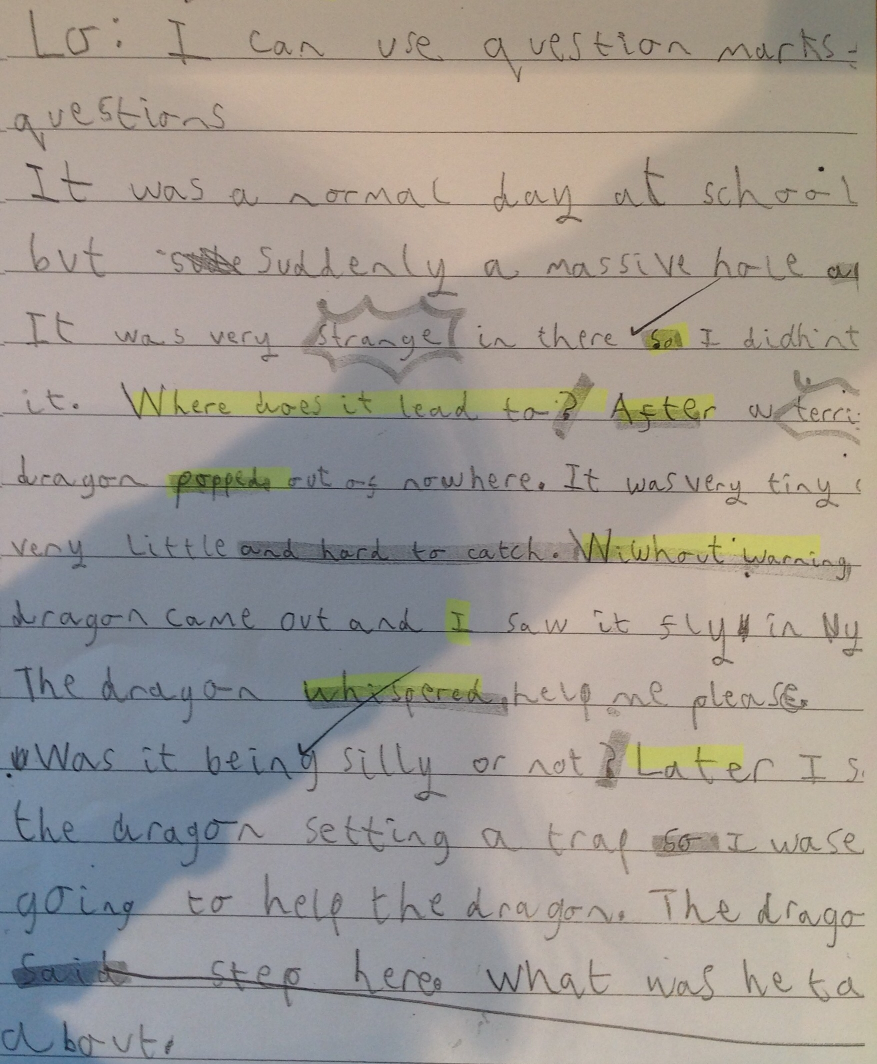 Lo: I can use question marks-
questions
It was a normal day at school
but suddenly a massive hole
It was very strange in there so I didhint
it. Where does it lead to? After a terri
dragon popped out of nowhere. It was very tiny
very little and hard to catch. Wiwhout warning,
dragon came out and I saw it fly in Ny
The dragon whispered, help me please.
Was it being silly or not? Later I s
the dragon setting a trap so I wase
going to help the dragon. The drago
said step here. what was he ta
about.